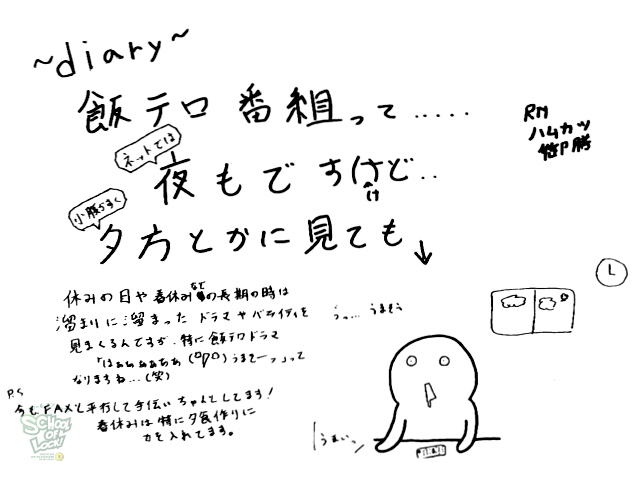 ~diary~
飯テロ番組って.....
RN
ハムカツ
ネットでは
夜もですけど..
け
小腹がすく
夕方とかに見ても↓
L
休みの日や春休みなどの長期の時は
溜まりに溜まったドラマやバラティを
見まくるんですが、特に飯テロドラマ
「はぁぁぁぁぁぁ(°▽°)うまそーっ」って
なりますね…(笑)
うっ…うまそう
P.S
今もFAXと平行して手伝いちゃんとしてます!
春休みは特に夕食作りに
力を入れてます。
うまいっ
SCHOOL OF LOCK!